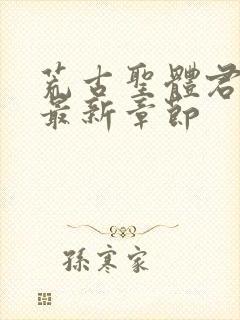 荒古聖體君
最新章節
孫寒家